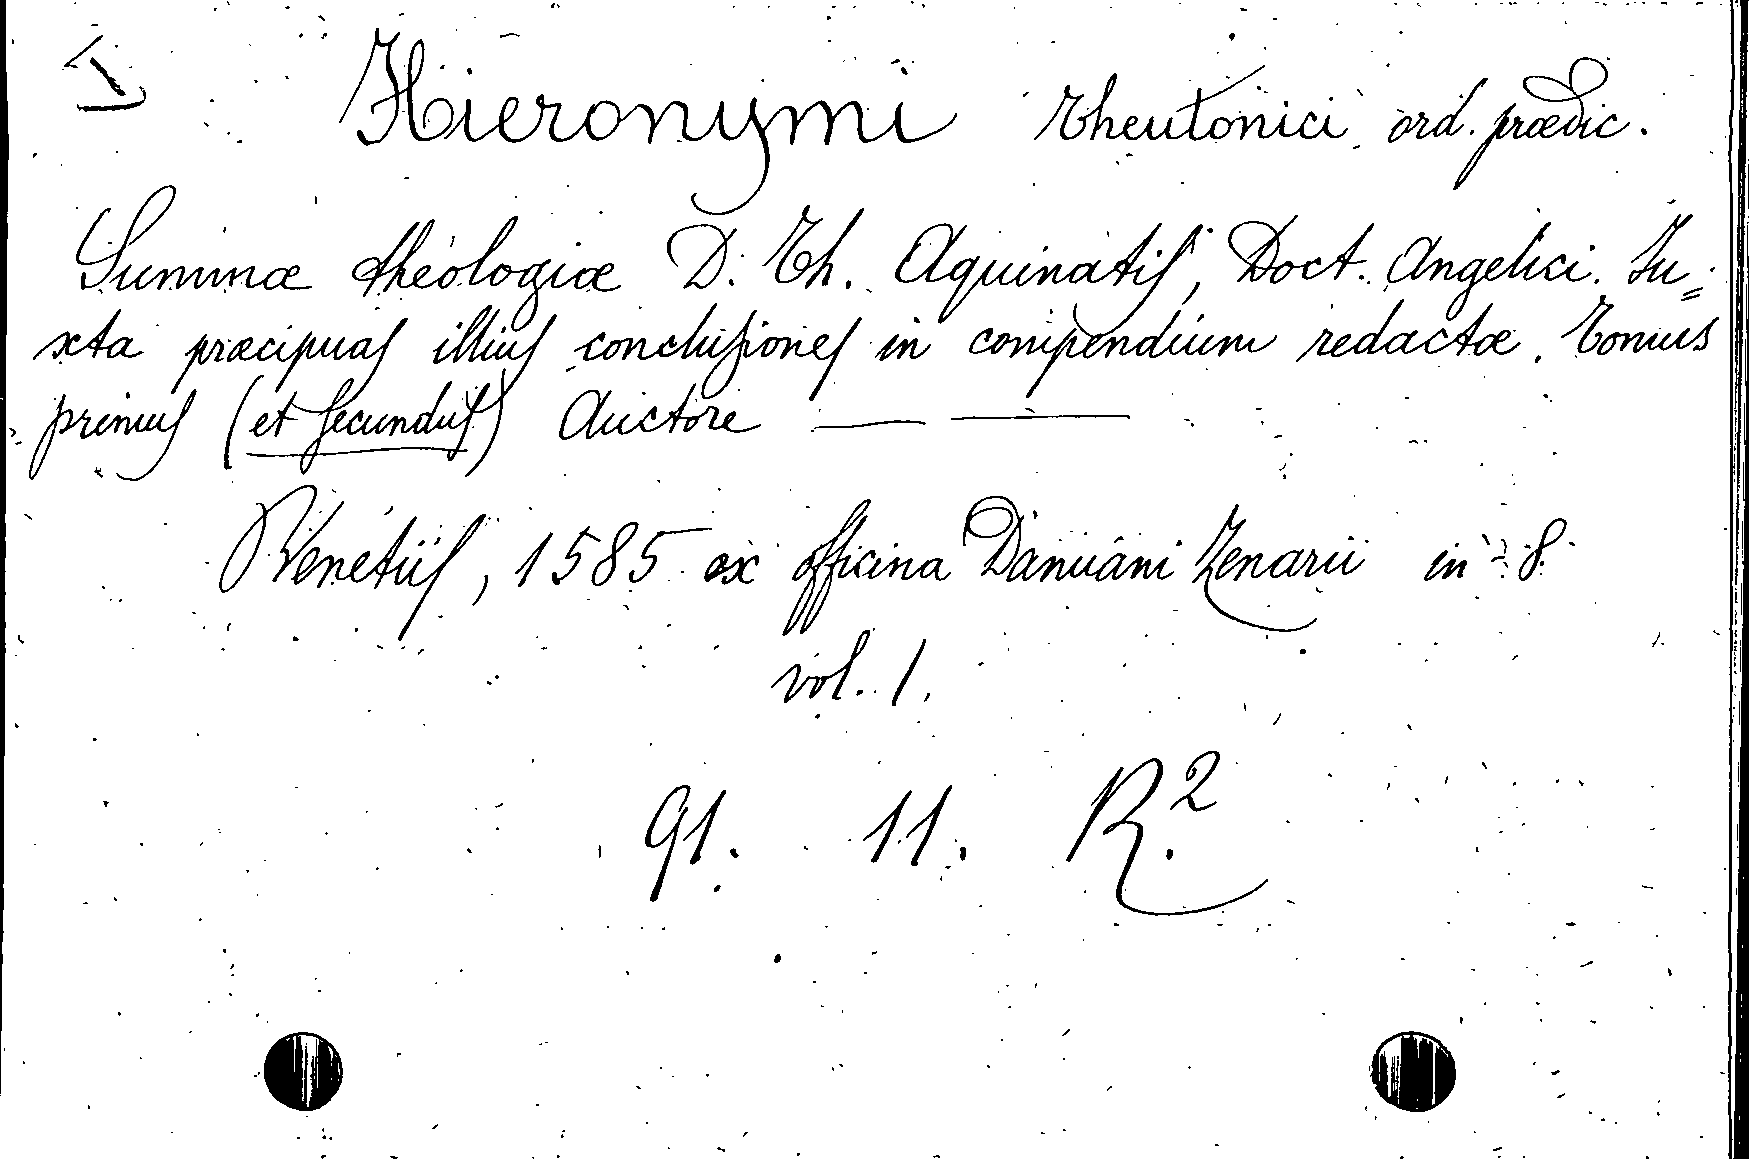 I
Hieronymi Theutonici ord. prædic.
Summæ theologiæ D. Th. Aquinatis, Doct. Angelici. Ju=
xta præcipuas illius conclusiones in compendium redactæ. Tomus
primus (et secundus) Auctore — —
Venetiis, 1585 ex officina Damiani Zenarii in-8.
vol. 1.
91. 11. R.²